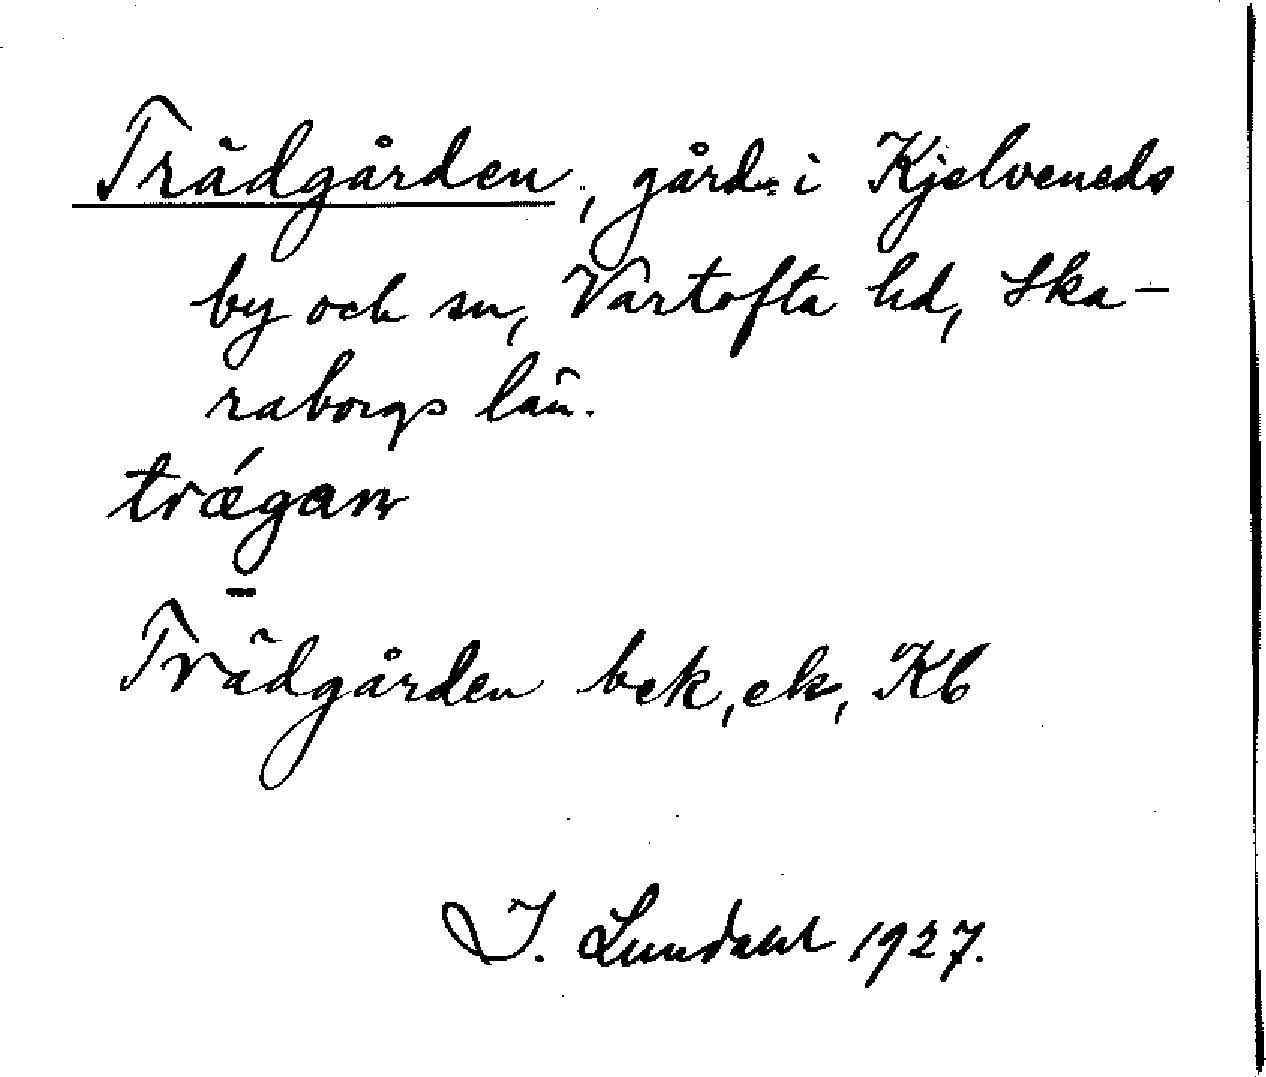 Trädgården, gård i Kjelveneds
by och sn, Vartofta hd, Ska-
raborgs län.
trǽgam
Trädgården bek, ek, Kb
I. Lundahl 1927.